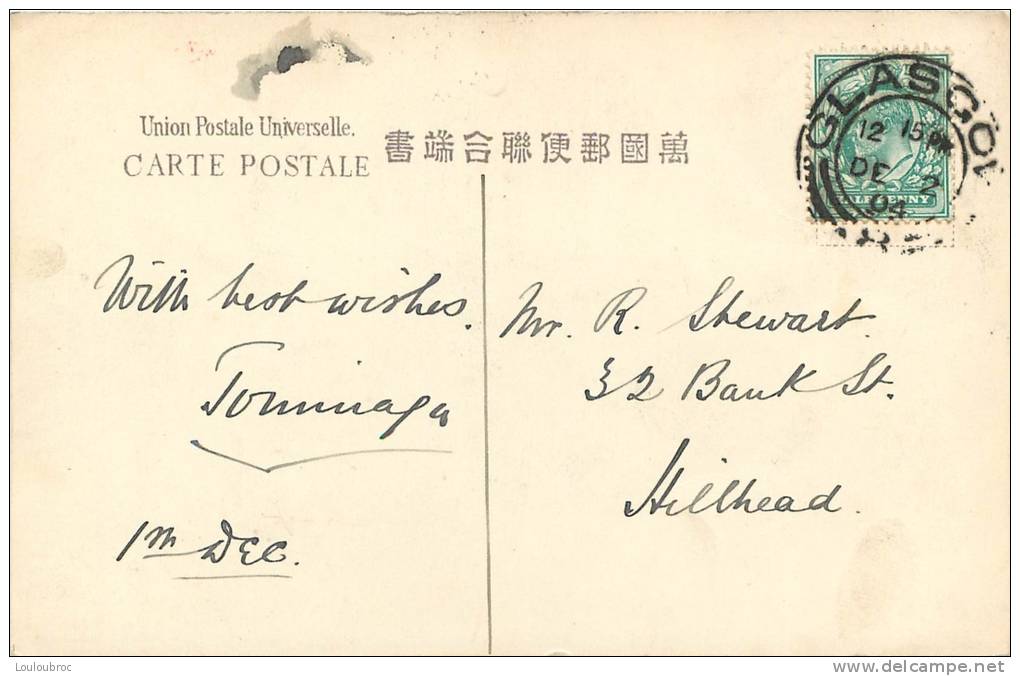 Union Postale Universelle.
CARTE POSTALE
書端合聯便郵國萬
GLASGOW
12 15 PM
DE 2
04
HALFPENNY
With best wishes.
Tominaga
1st DEC.
Mr. R. Stewart.
32 Bank St.
Hillhead.
Louloubroc
delcampe.net